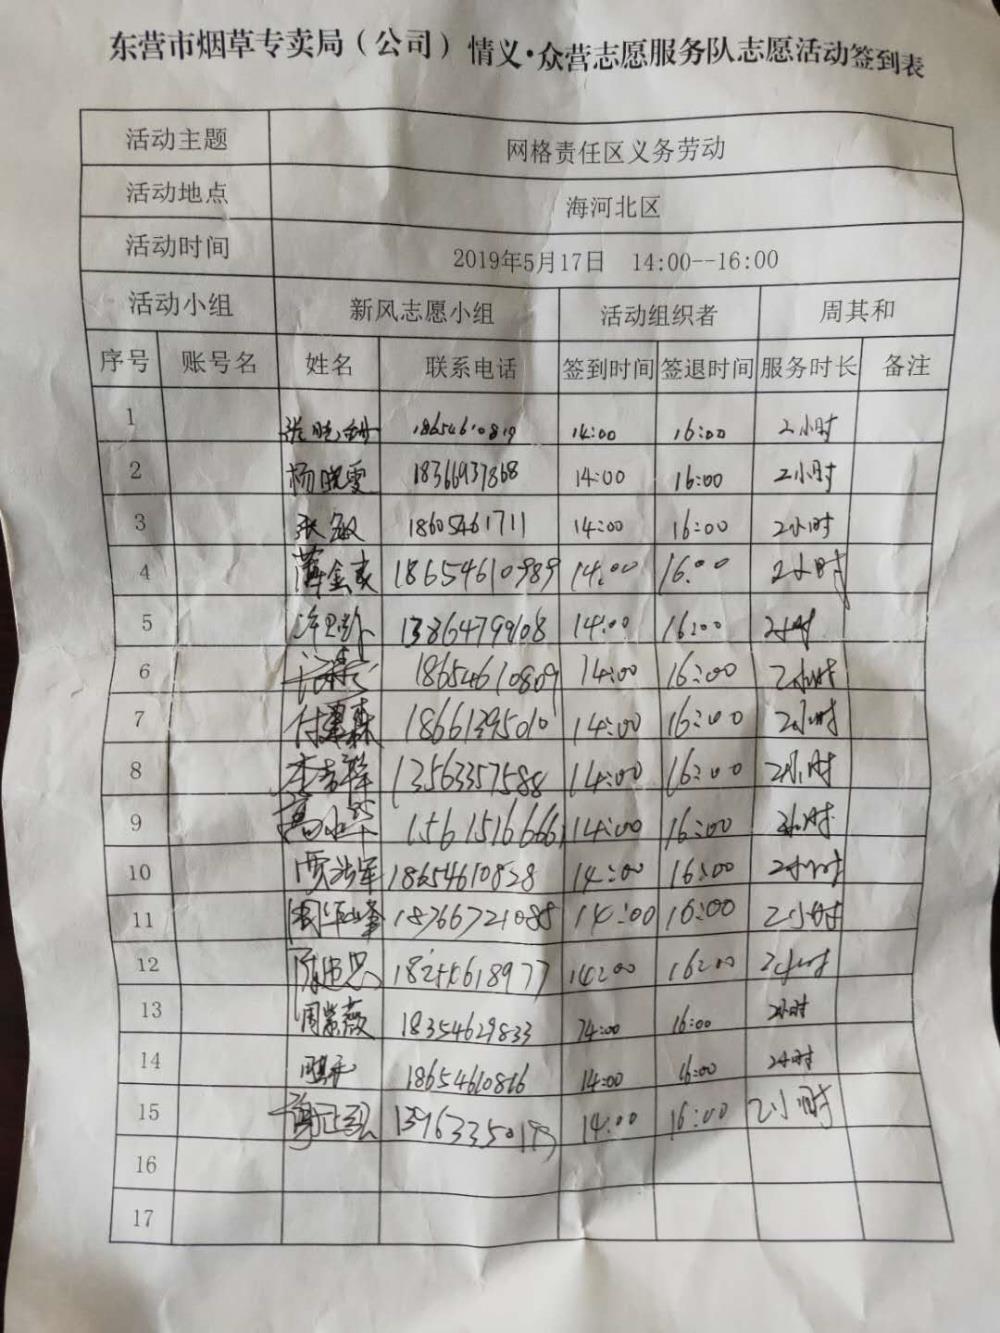 东营市烟草专卖局（公司）情义·众营志愿服务队志愿活动签到表
活动主题 网格责任区义务劳动
活动地点 海河北区
活动时间 2019年5月17日 14:00--16:00
活动小组 新风志愿小组 活动组织者 周其和
序号 账号名 姓名 联系电话 签到时间 签退时间 服务时长 备注
1 14:00 16:00 2小时
2 杨晓雯 18366937868 14:00 16:00 2小时
3 张敏 18605461711 14:00 16:00 2小时
4 18654610989 14:00 16:00 2小时
5 13864799108 14:00 16:00 2小时
6 18654610809 14:00 16:00 2小时
7 18661395010 14:00 16:00 2小时
8 13563357588 14:00 16:00 2小时
9 15615716661 14:00 16:00 2小时
10 18654610828 14:00 16:00 2小时
11 18766721088 14:00 16:00 2小时
12 14:00 16:00 2小时
13 周紫薇 18354629833 14:00 16:00 2小时
14 18654610816 14:00 16:00 2小时
15 14:00 16:00 2小时
16
17